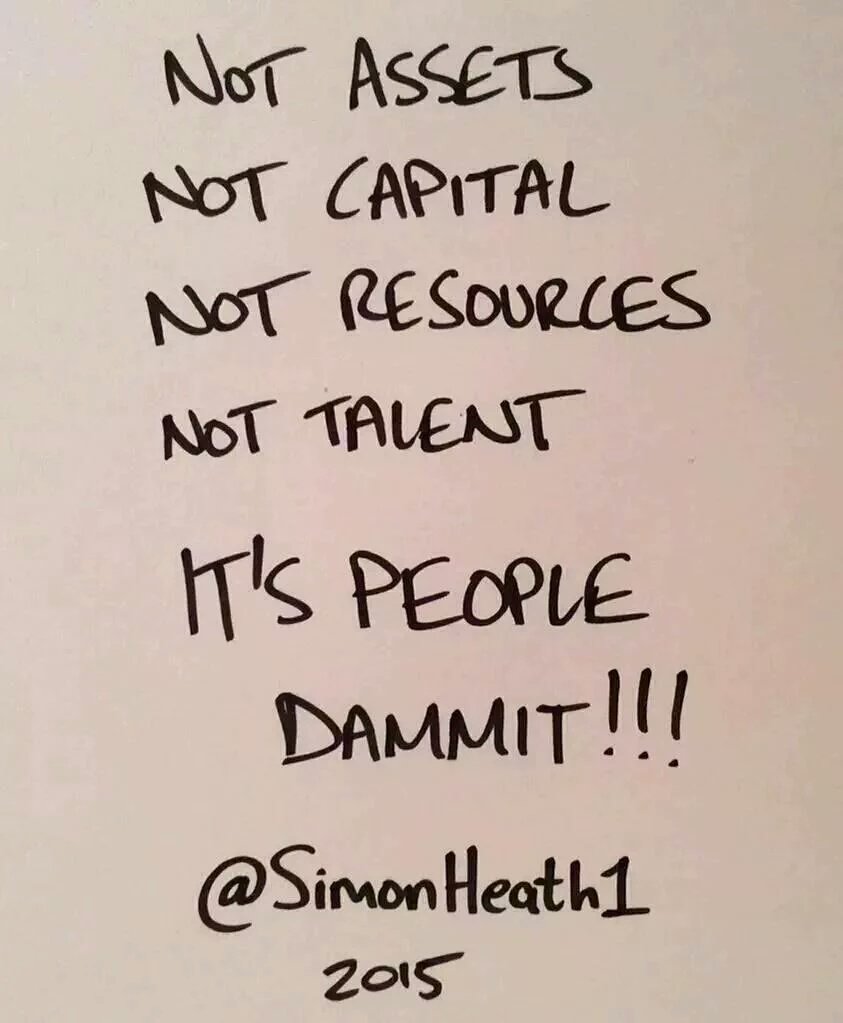 NOT ASSETS
NOT CAPITAL
NOT RESOURCES
NOT TALENT
IT'S PEOPLE
DAMMIT!!!
@SimonHeath1
2015